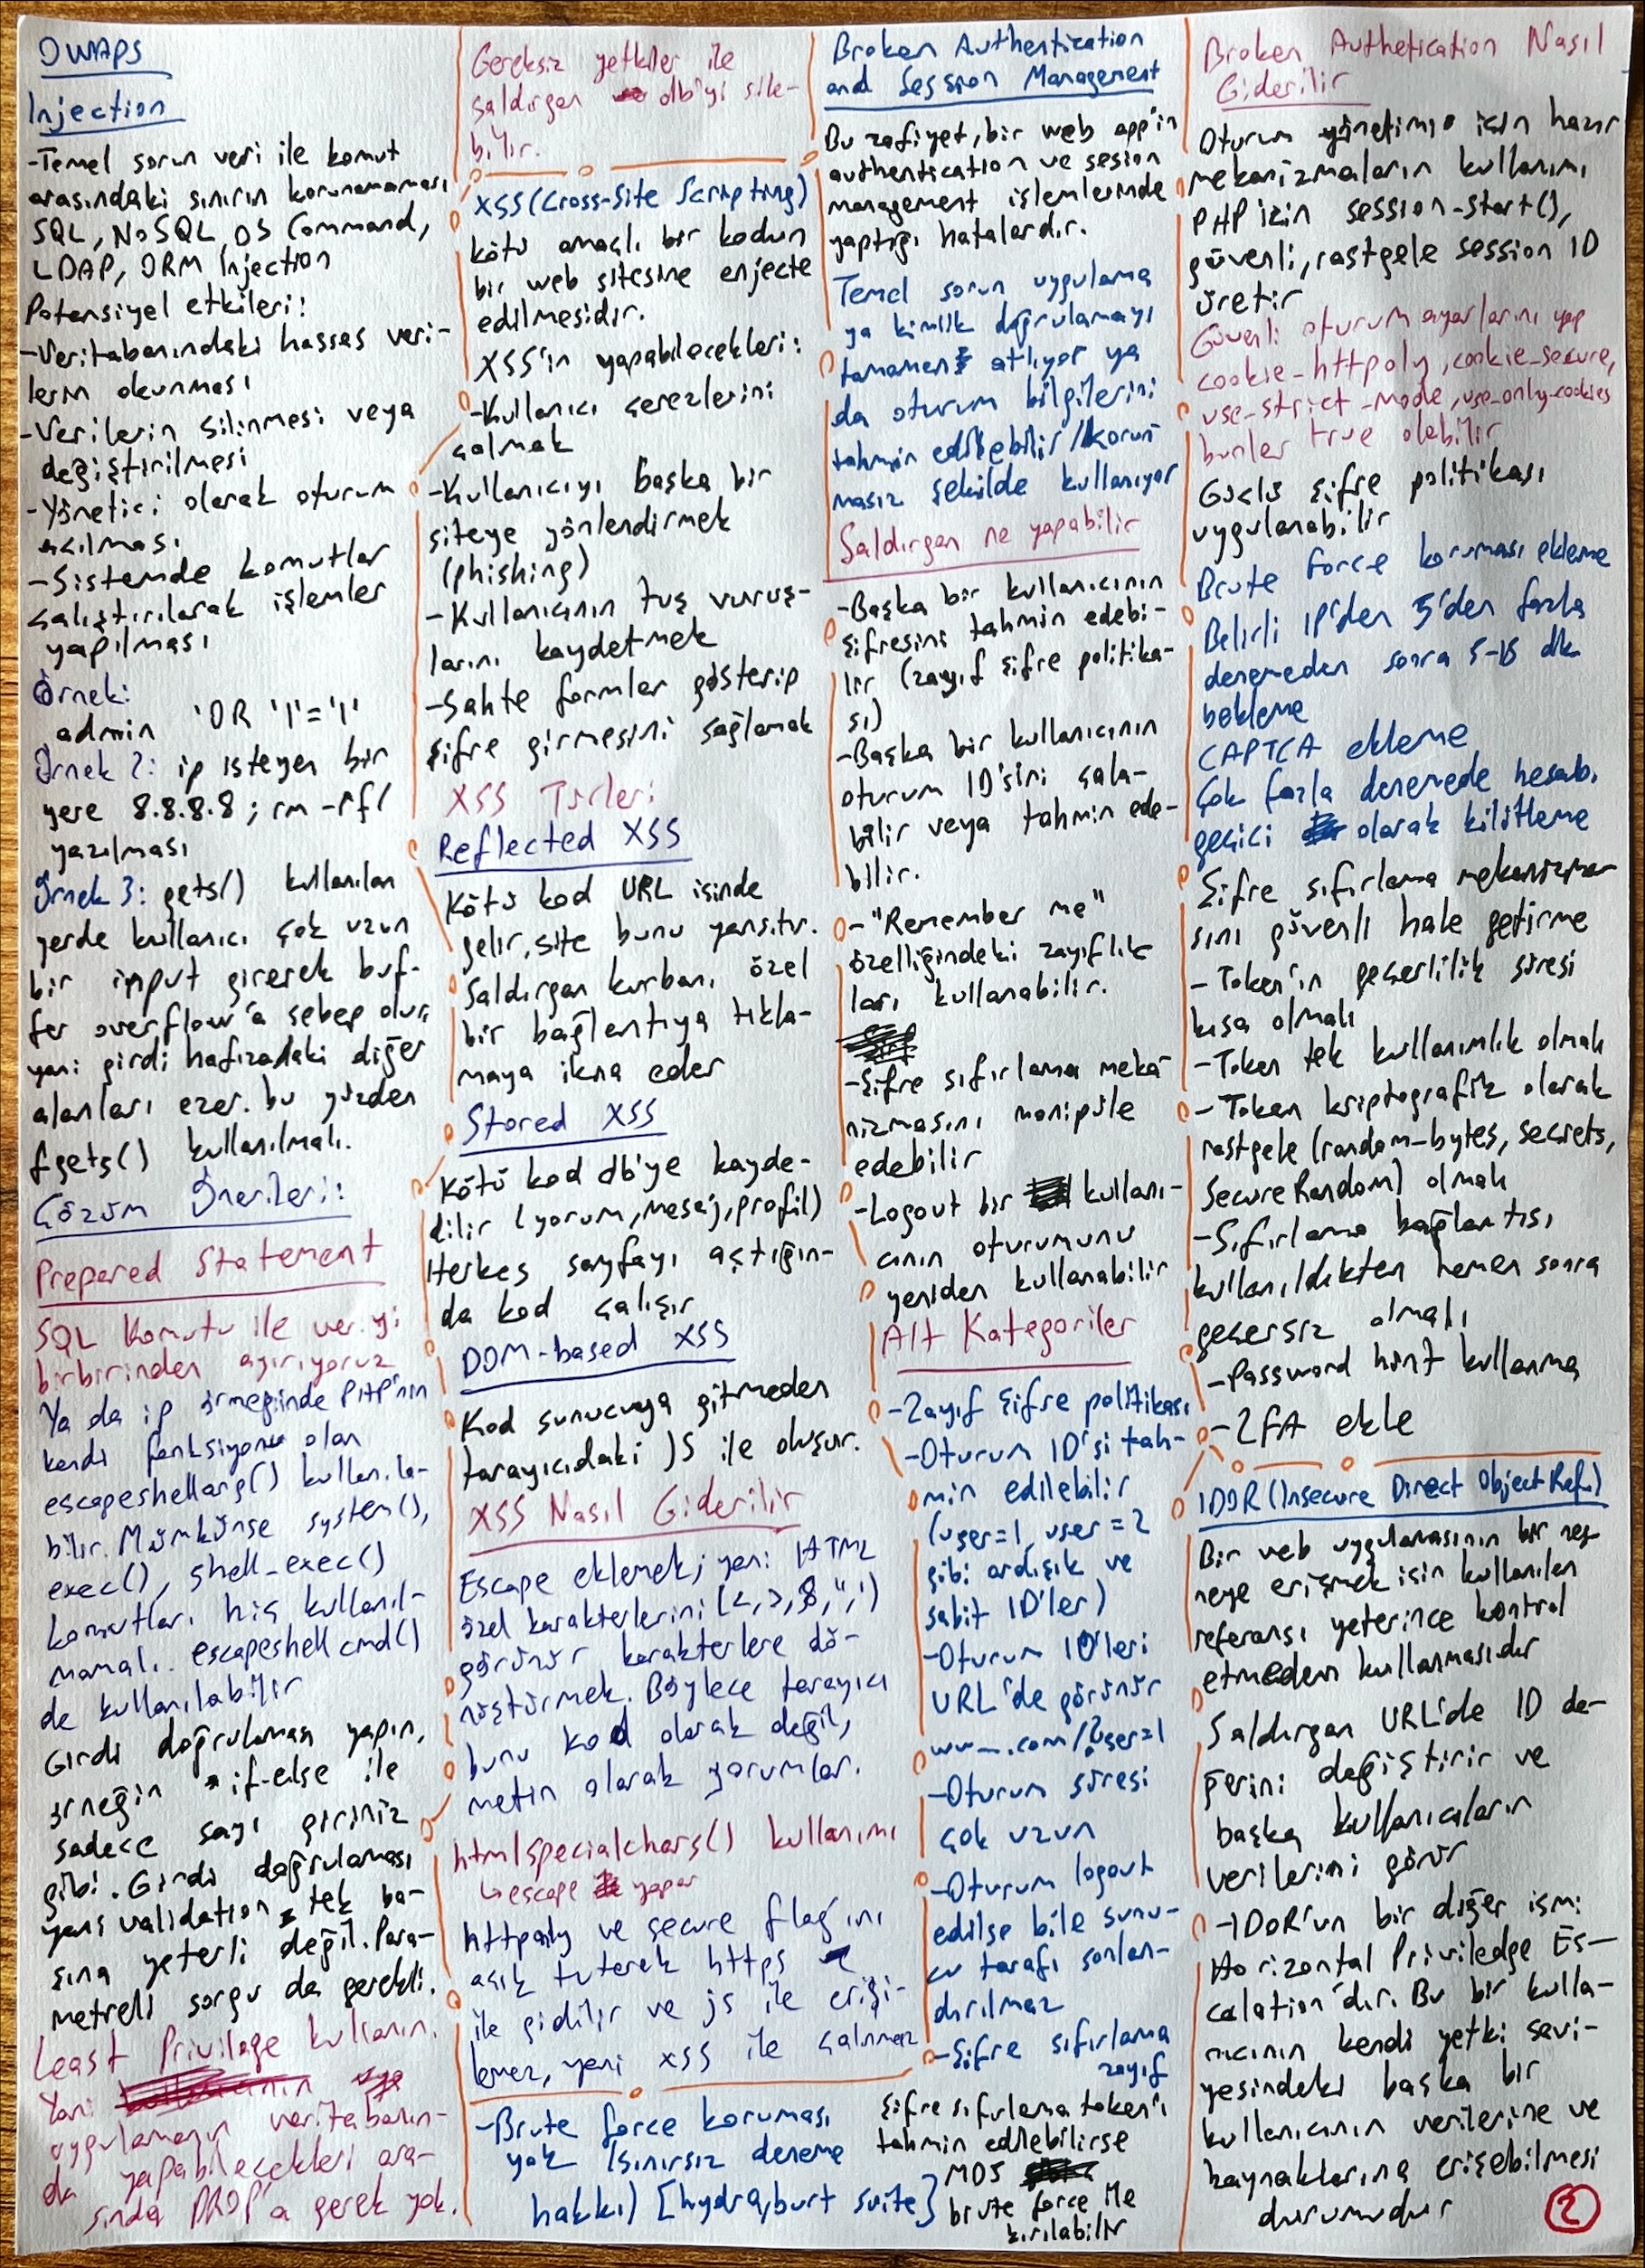 OWAPS
Injection
-Temel sorun veri ile komut
arasındaki sınırın korunamaması
SQL, NoSQL, OS Command,
LDAP, ORM Injection
Potansiyel etkileri:
-Veritabanındaki hassas veri-
lerin okunması
-Verilerin silinmesi veya
değiştirilmesi
-Yönetici olarak oturum
açılması
-Sistemde komutlar
çalıştırılarak işlemler
yapılması
Örnek:
admin 'OR '1'='1'
Örnek 2: ip isteyen bir
yere 8.8.8.8 ; rm -rf/
yazılması
Örnek 3: gets() kullanılan
yerde kullanıcı çok uzun
bir input girerek buf-
fer overflow'a sebep olur,
yani girdi hafızadaki diğer
alanları ezer. bu yüzden
fgets() kullanılmalı.
Çözüm Önerileri:
Prepared Statement
SQL Komutu ile veriyi
birbirinden ayırıyoruz
Ya da ip örneğinde PHP'nin
kendi fonksiyonu olan
escapeshellarg() kullanıla-
bilir. Mümkünse system(),
exec(), shell_exec()
komutları hiç kullanıl-
mamalı. escapeshellcmd()
de kullanılabilir
Girdi doğrulaması yapın,
örneğin if-else ile
sadece sayı giriniz
gibi. Girdi doğrulaması
yani validation tek ba-
şına yeterli değil. Para-
metreli sorgu da gerekli.
Least Privilege kullanın.
Yani
uygulamanın veritabanın-
da yapabilecekleri ara-
sında DROP'a gerek yok.
Gereksiz yetkiler ile
saldırgan db'yi sile-
bilir.
XSS (Cross-Site Scripting)
kötü amaçlı bir kodun
bir web sitesine enjecte
edilmesidir.
XSS'in yapabilecekleri:
-Kullanıcı çerezlerini
çalmak
-Kullanıcıyı başka bir
siteye yönlendirmek
(phishing)
-Kullanıcının tuş vuruş-
larını kaydetmek
-Sahte formlar gösterip
şifre girmesini sağlamak
XSS Türleri
Reflected XSS
Kötü kod URL içinde
gelir, site bunu yansıtır.
Saldırgan kurbanı özel
bir bağlantıya tıkla-
maya ikna eder
Stored XSS
Kötü kod db'ye kayde-
dilir (yorum, mesaj, profil)
Herkes sayfayı açtığın-
da kod çalışır
DOM-based XSS
Kod sunucuya gitmeden
tarayıcıdaki JS ile oluşur.
XSS Nasıl Giderilir
Escape eklemek; yani HTML
özel karakterlerini (<, >, &, ", ')
görünür karakterlere dö-
nüştürmek. Böylece tarayıcı
bunu kod olarak değil,
metin olarak yorumlar.
htmlspecialchars() kullanımı
↳escape yapar
httponly ve secure flag'ini
açık tutarak https
ile gidilir ve js ile erişi-
lemez, yani xss ile çalınmaz
-Brute force koruması
yok (sınırsız deneme
hakkı) [hydra, burt suite]
Broken Authentication
and Session Management
Bu zafiyet, bir web app'in
authentication ve sesion
management işlemlerinde
yaptığı hatalardır.
Temel sorun uygulama
ya kimlik doğrulamayı
tamamen atlıyor ya
da oturum bilgilerini
tahmin edilebilir/korun
masız şekilde kullanıyor
Saldırgan ne yapabilir
-Başka bir kullanıcının
şifresini tahmin edebi-
lir (zayıf şifre politika-
sı)
-Başka bir kullanıcının
oturum ID'sini çala-
bilir veya tahmin ede-
bilir.
-"Remember me"
özelliğindeki zayıflık
ları kullanabilir.
-Şifre sıfırlama meka
nizmasını manipüle
edebilir
-Logout bir kullanı-
cının oturumunu
yeniden kullanabilir
Alt Kategoriler
-Zayıf şifre politikası
-Oturum ID'si tah-
min edilebilir
(user=1, user=2
gibi ardışık ve
sabit ID'ler)
-Oturum ID'leri
URL'de görünür
www-.com/?user=1
-Oturum süresi
çok uzun
-Oturum logout
edilse bile sunu-
cu tarafı sonlan-
dırılmaz
-Şifre sıfırlama
zayıf
şifre sıfırlama token'ı
tahmin edilebilirse
MD5
brute force ile
kırılabilir
Broken Authetication Nasıl
Giderilir
Oturum yönetimi için hazır
mekanizmaların kullanımı
PHP için session-start(),
güvenli, rastgele session ID
üretir
Güvenli oturum ayarlarını yap
cookie_httpoly, cookie_secure,
use_strict_mode, use_only_cookies
bunlar true olabilir
Güçlü şifre politikası
uygulanabilir
Brute force koruması ekleme
Belirli IP'den 5'den fazla
denemeden sonra 5-15 dk
bekleme
CAPTCA ekleme
Çok fazla denemede hesabı
geçici olarak kilitleme
Şifre sıfırlama mekanizma
sını güvenli hale getirme
-Token'ın geçerlilik süresi
kısa olmalı
-Token tek kullanımlık olmalı
-Token kriptografik olarak
rastgele (random_bytes, secrets,
SecureRandom) olmalı
-Sıfırlama bağlantısı
kullanıldıkten hemen sonra
geçersiz olmalı
-Password hint kullanma
-2FA ekle
IDOR (Insecure Direct Object Ref.)
Bir web uygulamasının bir nes-
neye erişmek için kullanılan
referansı yeterince kontrol
etmeden kullanmasıdır
Saldırgan URL'de ID de-
ğerini değiştirir ve
başka kullanıcıların
verilerini görür
-IDOR'un bir diğer ismi
Horizontal Priviledge Es-
calation'dır. Bu bir kulla-
nıcının kendi yetki sevi-
yesindeki başka bir
kullanıcının verilerine ve
kaynaklarına erişebilmesi
durumudur
2